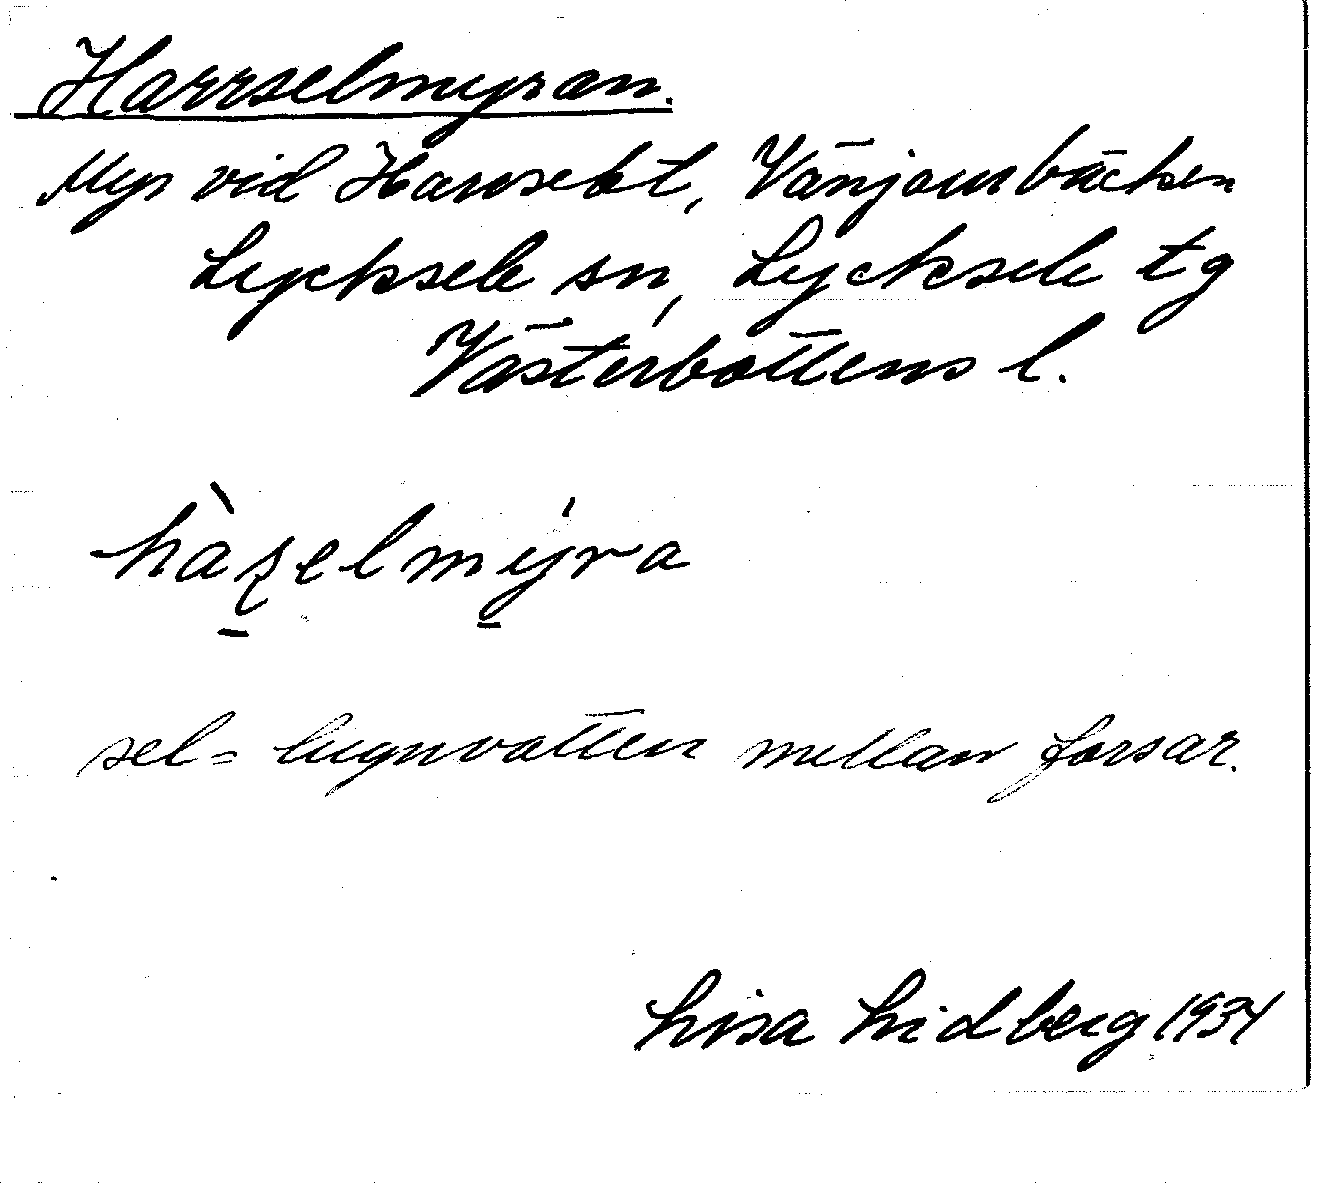 Harrselmyran.
Myr vid Harrselet, Vänjaurbäcken
Lycksele sn, Lycksele tg
Västerbottens l.
hàʂelmýra
sel = lugnvatten mellan forsar.
Lisa Lidberg 1934